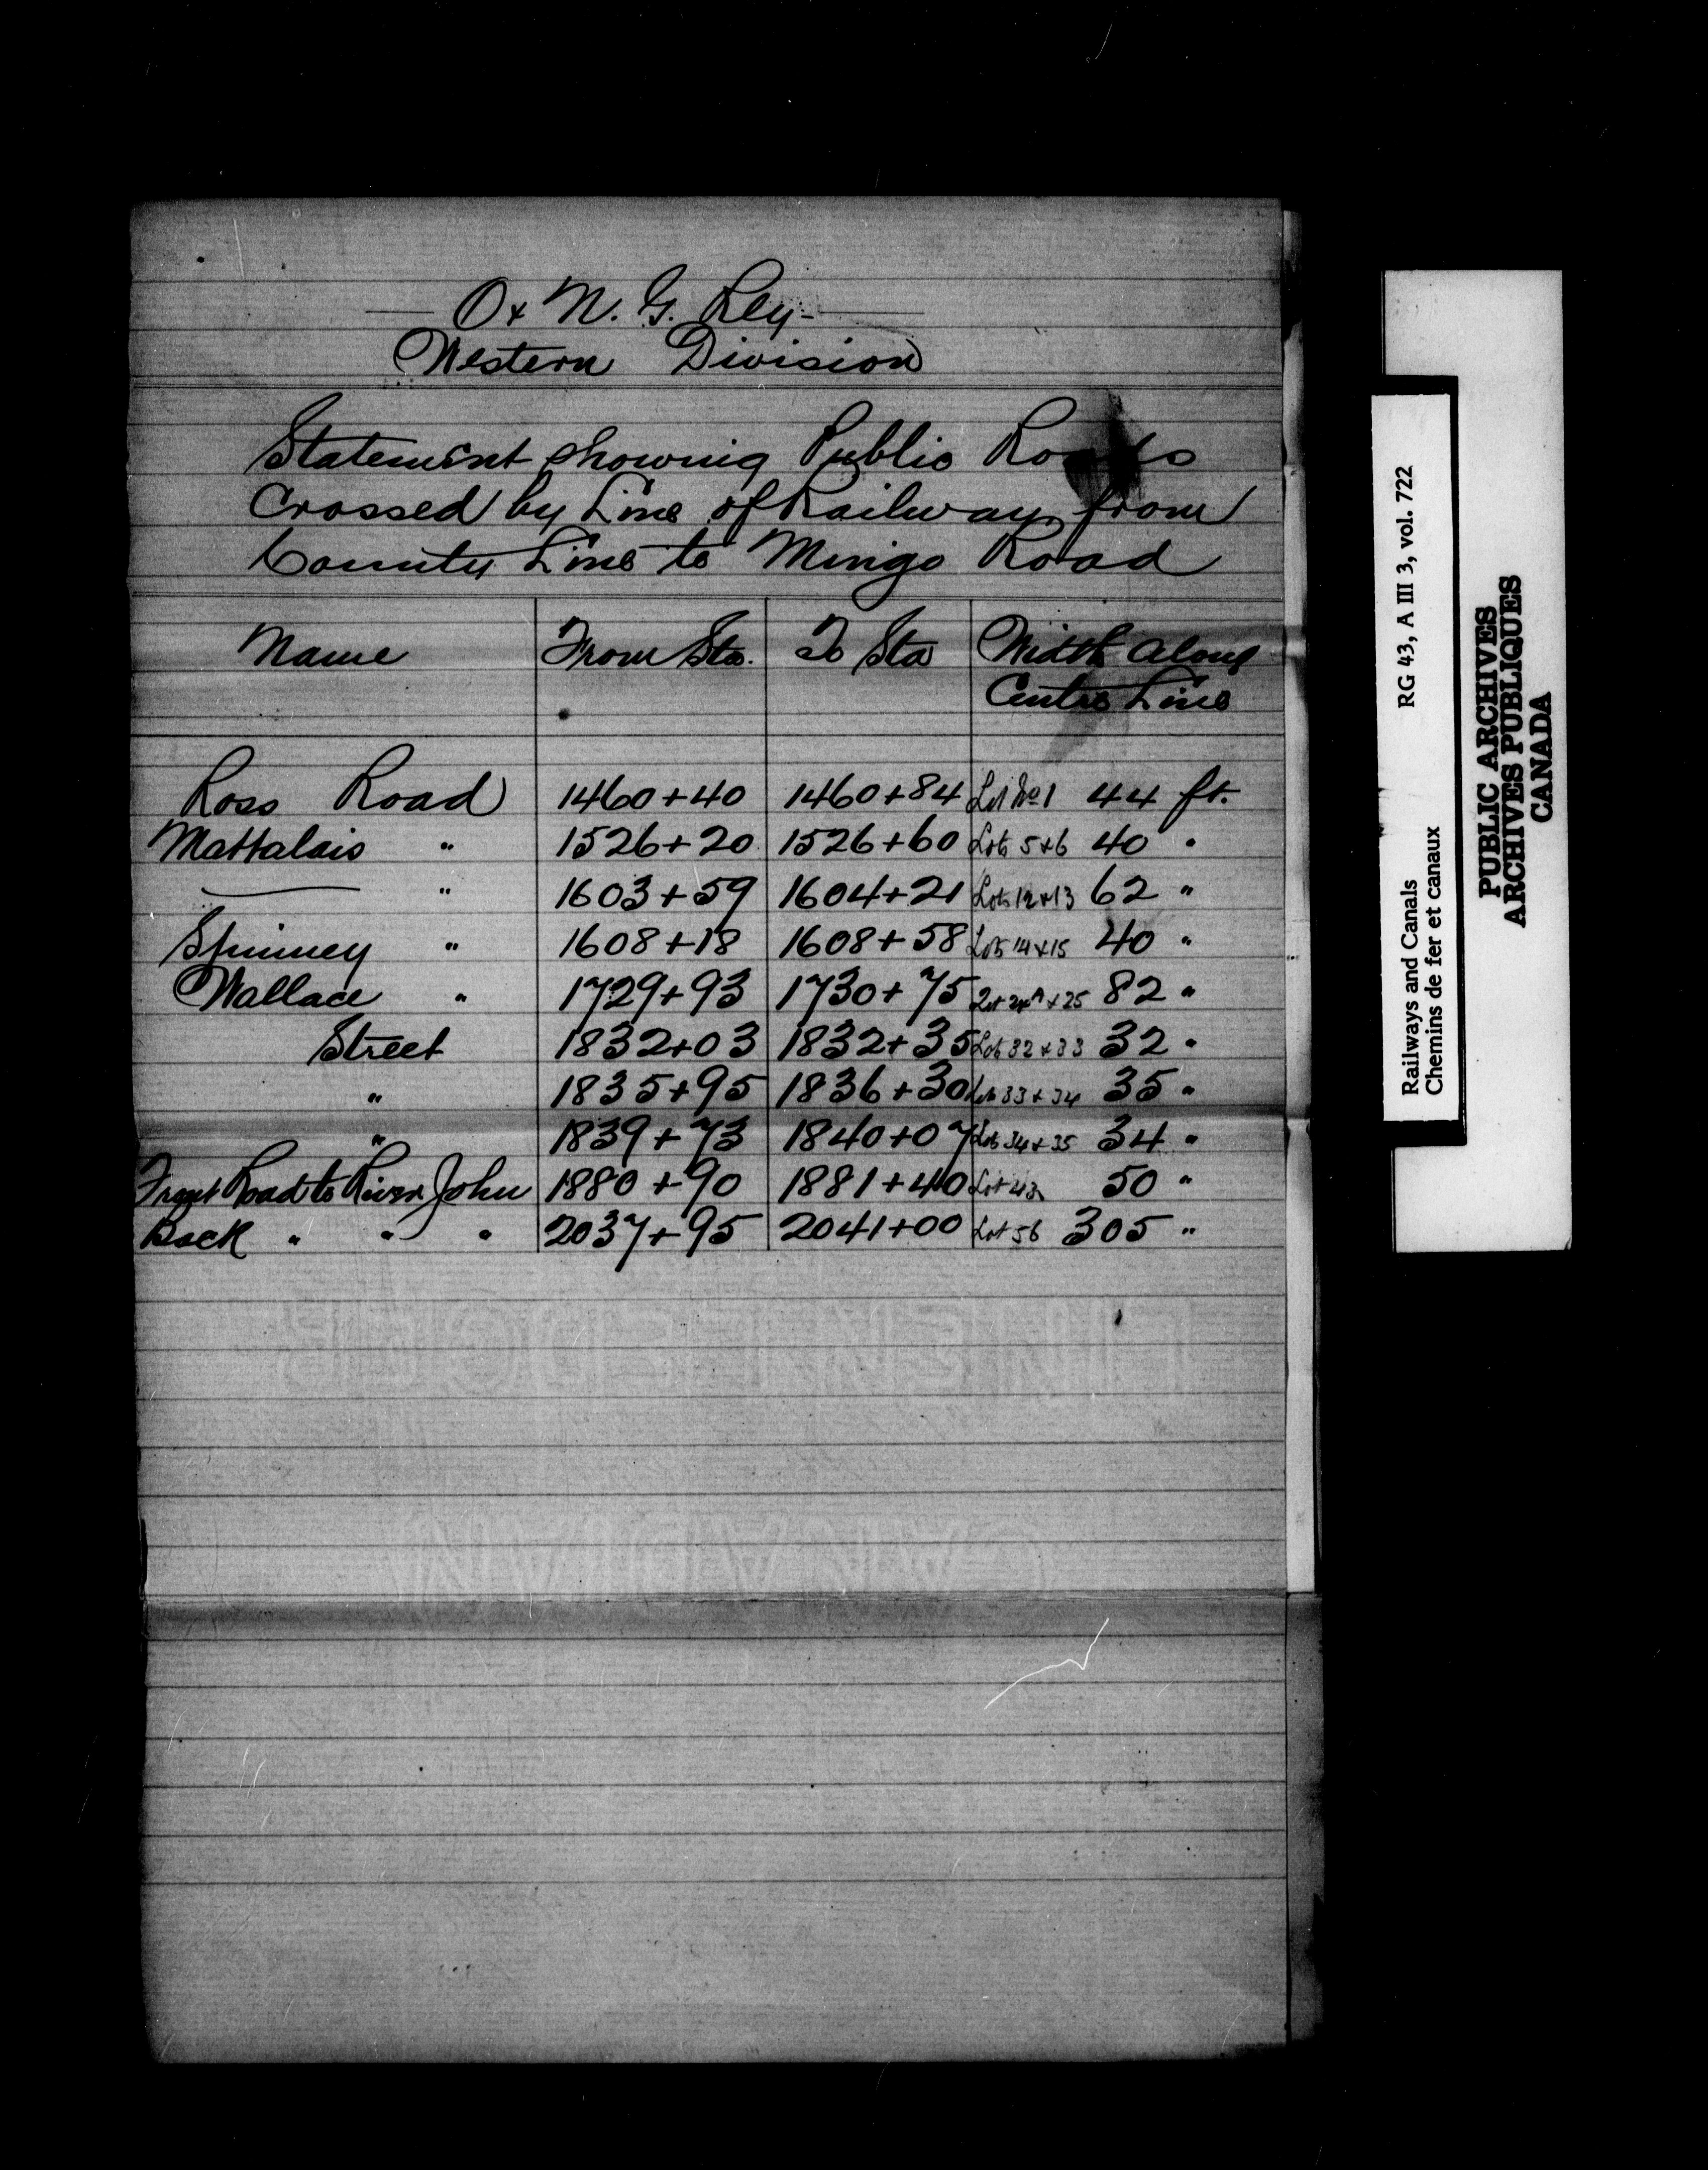 Ox N. G. Rly
Western Division
Statement showing Public Roads
Crossed by Line of Railway from
County Line to Mingo Road
Name From Sta. To Sta Width Along
Centre Line
Ross Road 1460+40 1460+84 Lot No 1 44 ft.
Mattalais " 1526+20 1526+60 Lots 5+6 40 "
" 1603+59 1604+21 Lots 12+13 62 "
Spinney " 1608+18 1608+58 Lots 14+15 40 "
Wallace " 1729+93 1730+75 Lot 24A+25 82 "
Street 1832+03 1832+35 Lots 32+33 32 "
" 1835+95 1836+30 Lots 33+34 35 "
" 1839+73 1840+07 Lots 34+35 34 "
Front Road to River John 1880+90 1881+40 Lot 43 50 "
Back " " " 2037+95 2041+00 Lot 56 305 "
Railways and Canals RG 43, A III 3, vol. 722
Chemins de fer et canaux
PUBLIC ARCHIVES
ARCHIVES PUBLIQUES
CANADA